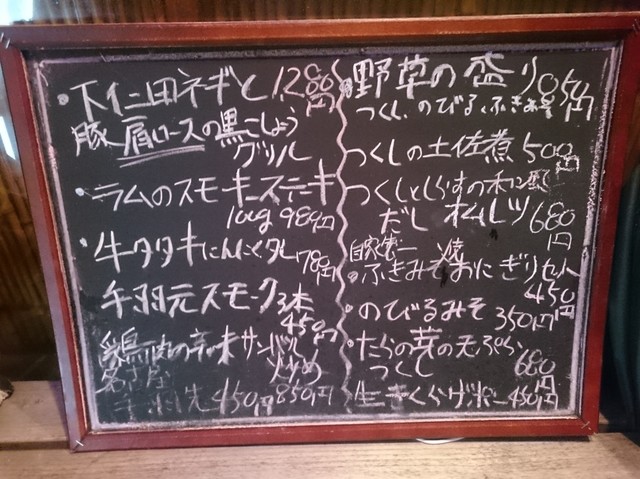 ・下仁田ネギと 1280円
豚肩ロースの黒こしょう
グリル
・ラムのスモーキステーキ
100g 980円
・牛タタキにんにくタレ 780円
手羽元スモーク3本
450円
鶏肉の辛味サンバル
炒め
850円
名古屋
手羽先 450円
野草の盛り 1050円
つくし、のびる、ふきみそ
つくしの土佐煮 500円
つくしとしらすの
だし 680円
自家製
・ふきみそおにぎり
450
・のびるみそ 350円
・たらの芽の天ぷら、
つくし 680円
生きくらげポン 450円